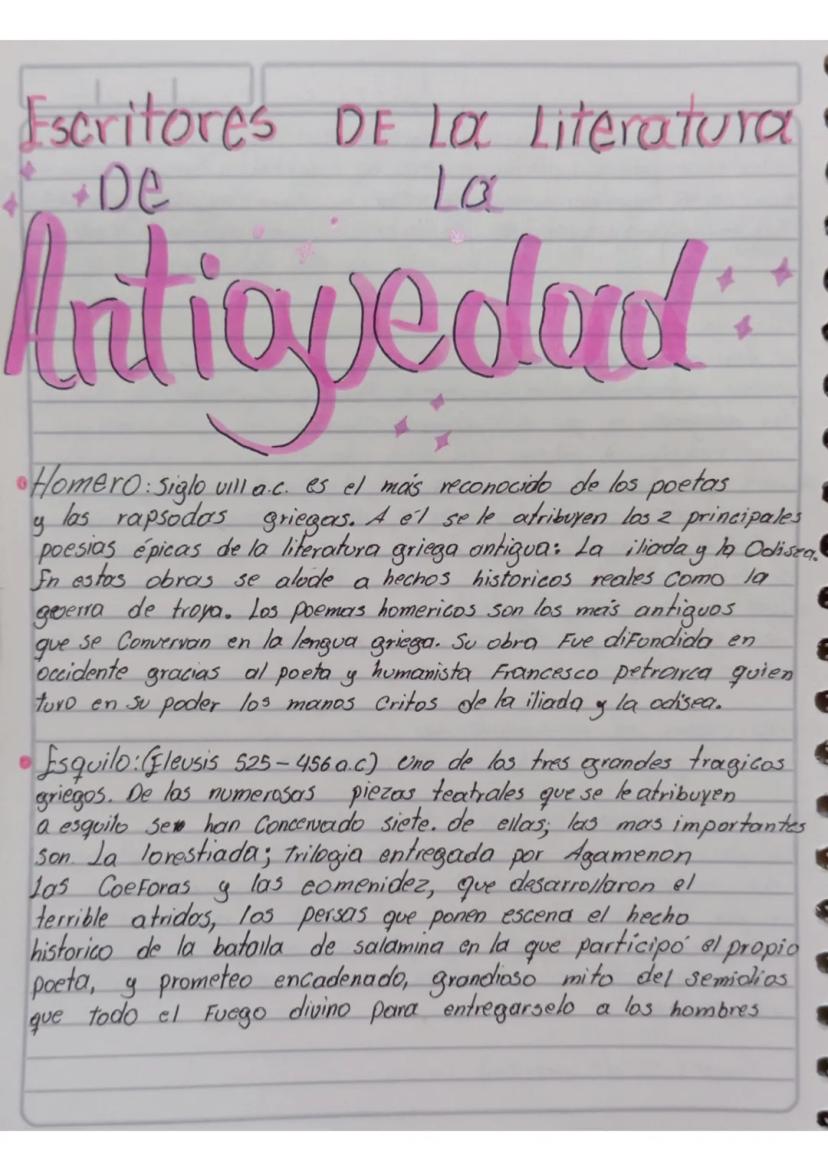 Escritores DE La Literatura
De La
Antiguedad
Homero: Siglo VIII a.c. es el más reconocido de los poetas
y las rapsodas griegas. A él se le atribuyen las 2 principales
poesias épicas de la literatura griega antigua: La iliada y la Odisea.
En estas obras se alude a hechos historicos reales como la
guerra de troya. Los poemas homericos son los más antiguos
que se Convervan en la lengua griega. Su obra Fue diFundida en
occidente gracias al poeta y humanista Francesco petrarca quien
tuvo en su poder los manos Critos de la iliada y la odisea.
Esquilo: (Eleusis 525-456 a.c) Uno de los tres grandes tragicos
griegos. De las numerosas piezas teatrales que se le atribuyen
a esquilo se han Concervado siete. de ellas; las mas importantes
son La lorestiada; trilogia entregada por Agamenon
Las CoeForas y las eomenidez, que desarrollaron el
terrible atridas, los persas que ponen escena el hecho
historico de la batalla de salamina en la que participó el propio
poeta, y prometeo encadenado, grandioso mito del semidias
que todo el Fuego divino para entregarselo a los hombres